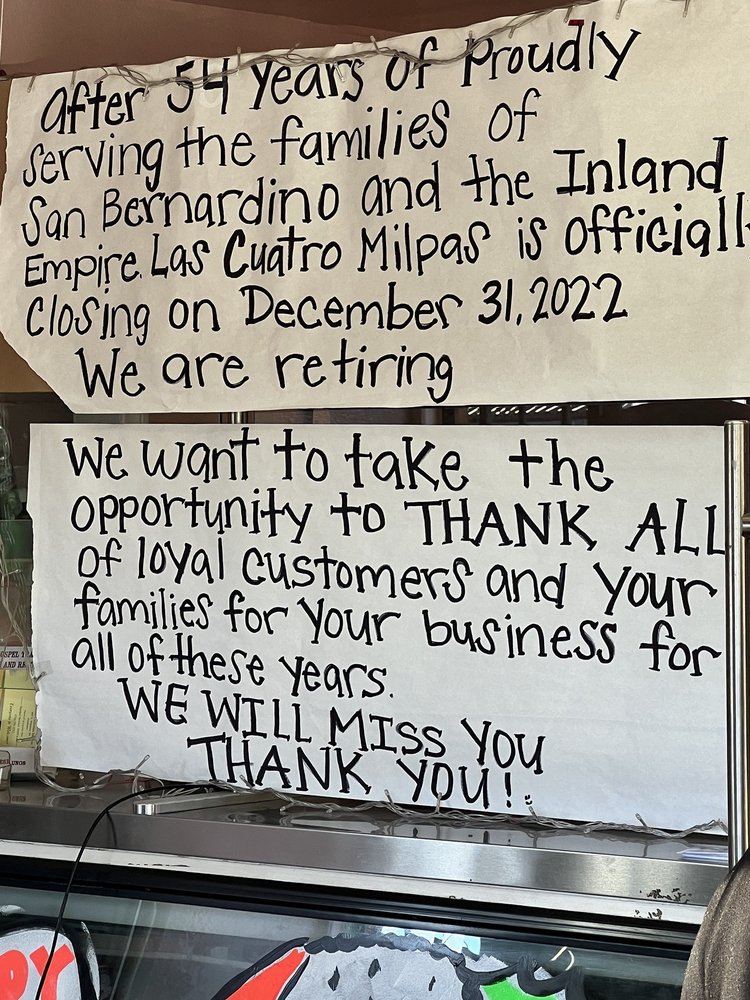 after 54 years of Proudly
serving the families of
San Bernardino and the Inland
Empire. Las Cuatro Milpas is officially
Closing on December 31, 2022
We are retiring
We want to take the
opportunity to THANK ALL
of loyal customers and your
families for your business for
all of these years.
WE WILL MISS YOU
THANK YOU!